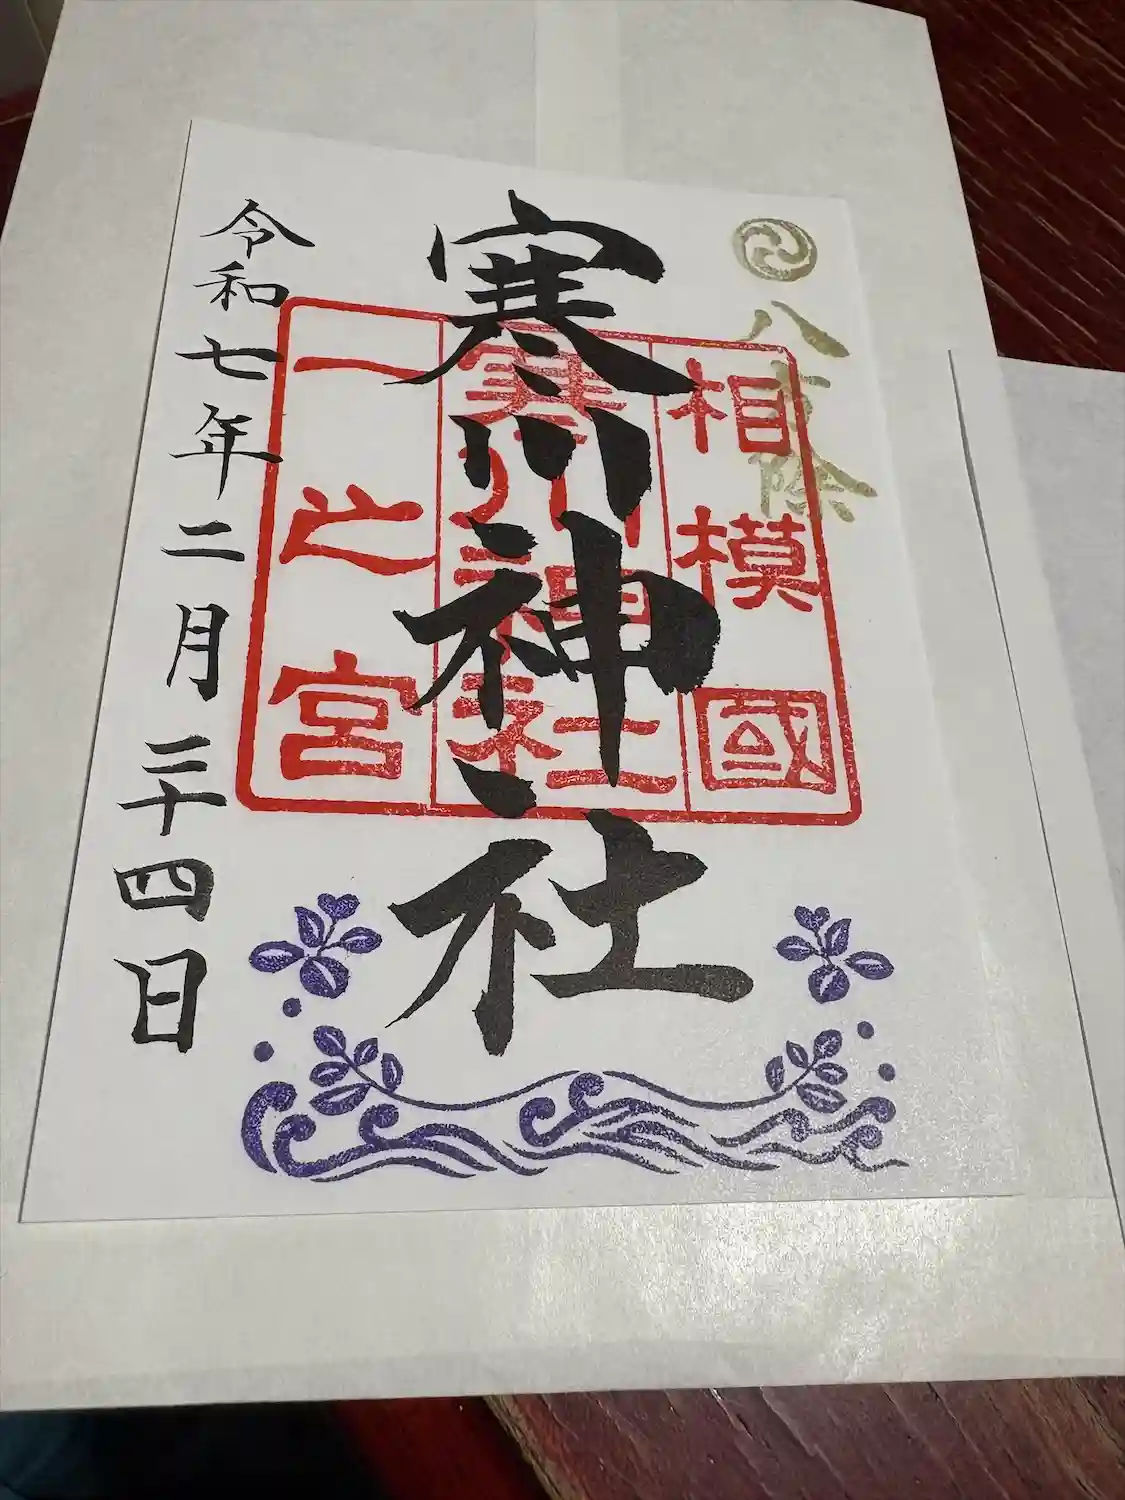 八方除
相模國
寒川神社
一之宮
寒川神社
令和七年二月二十四日